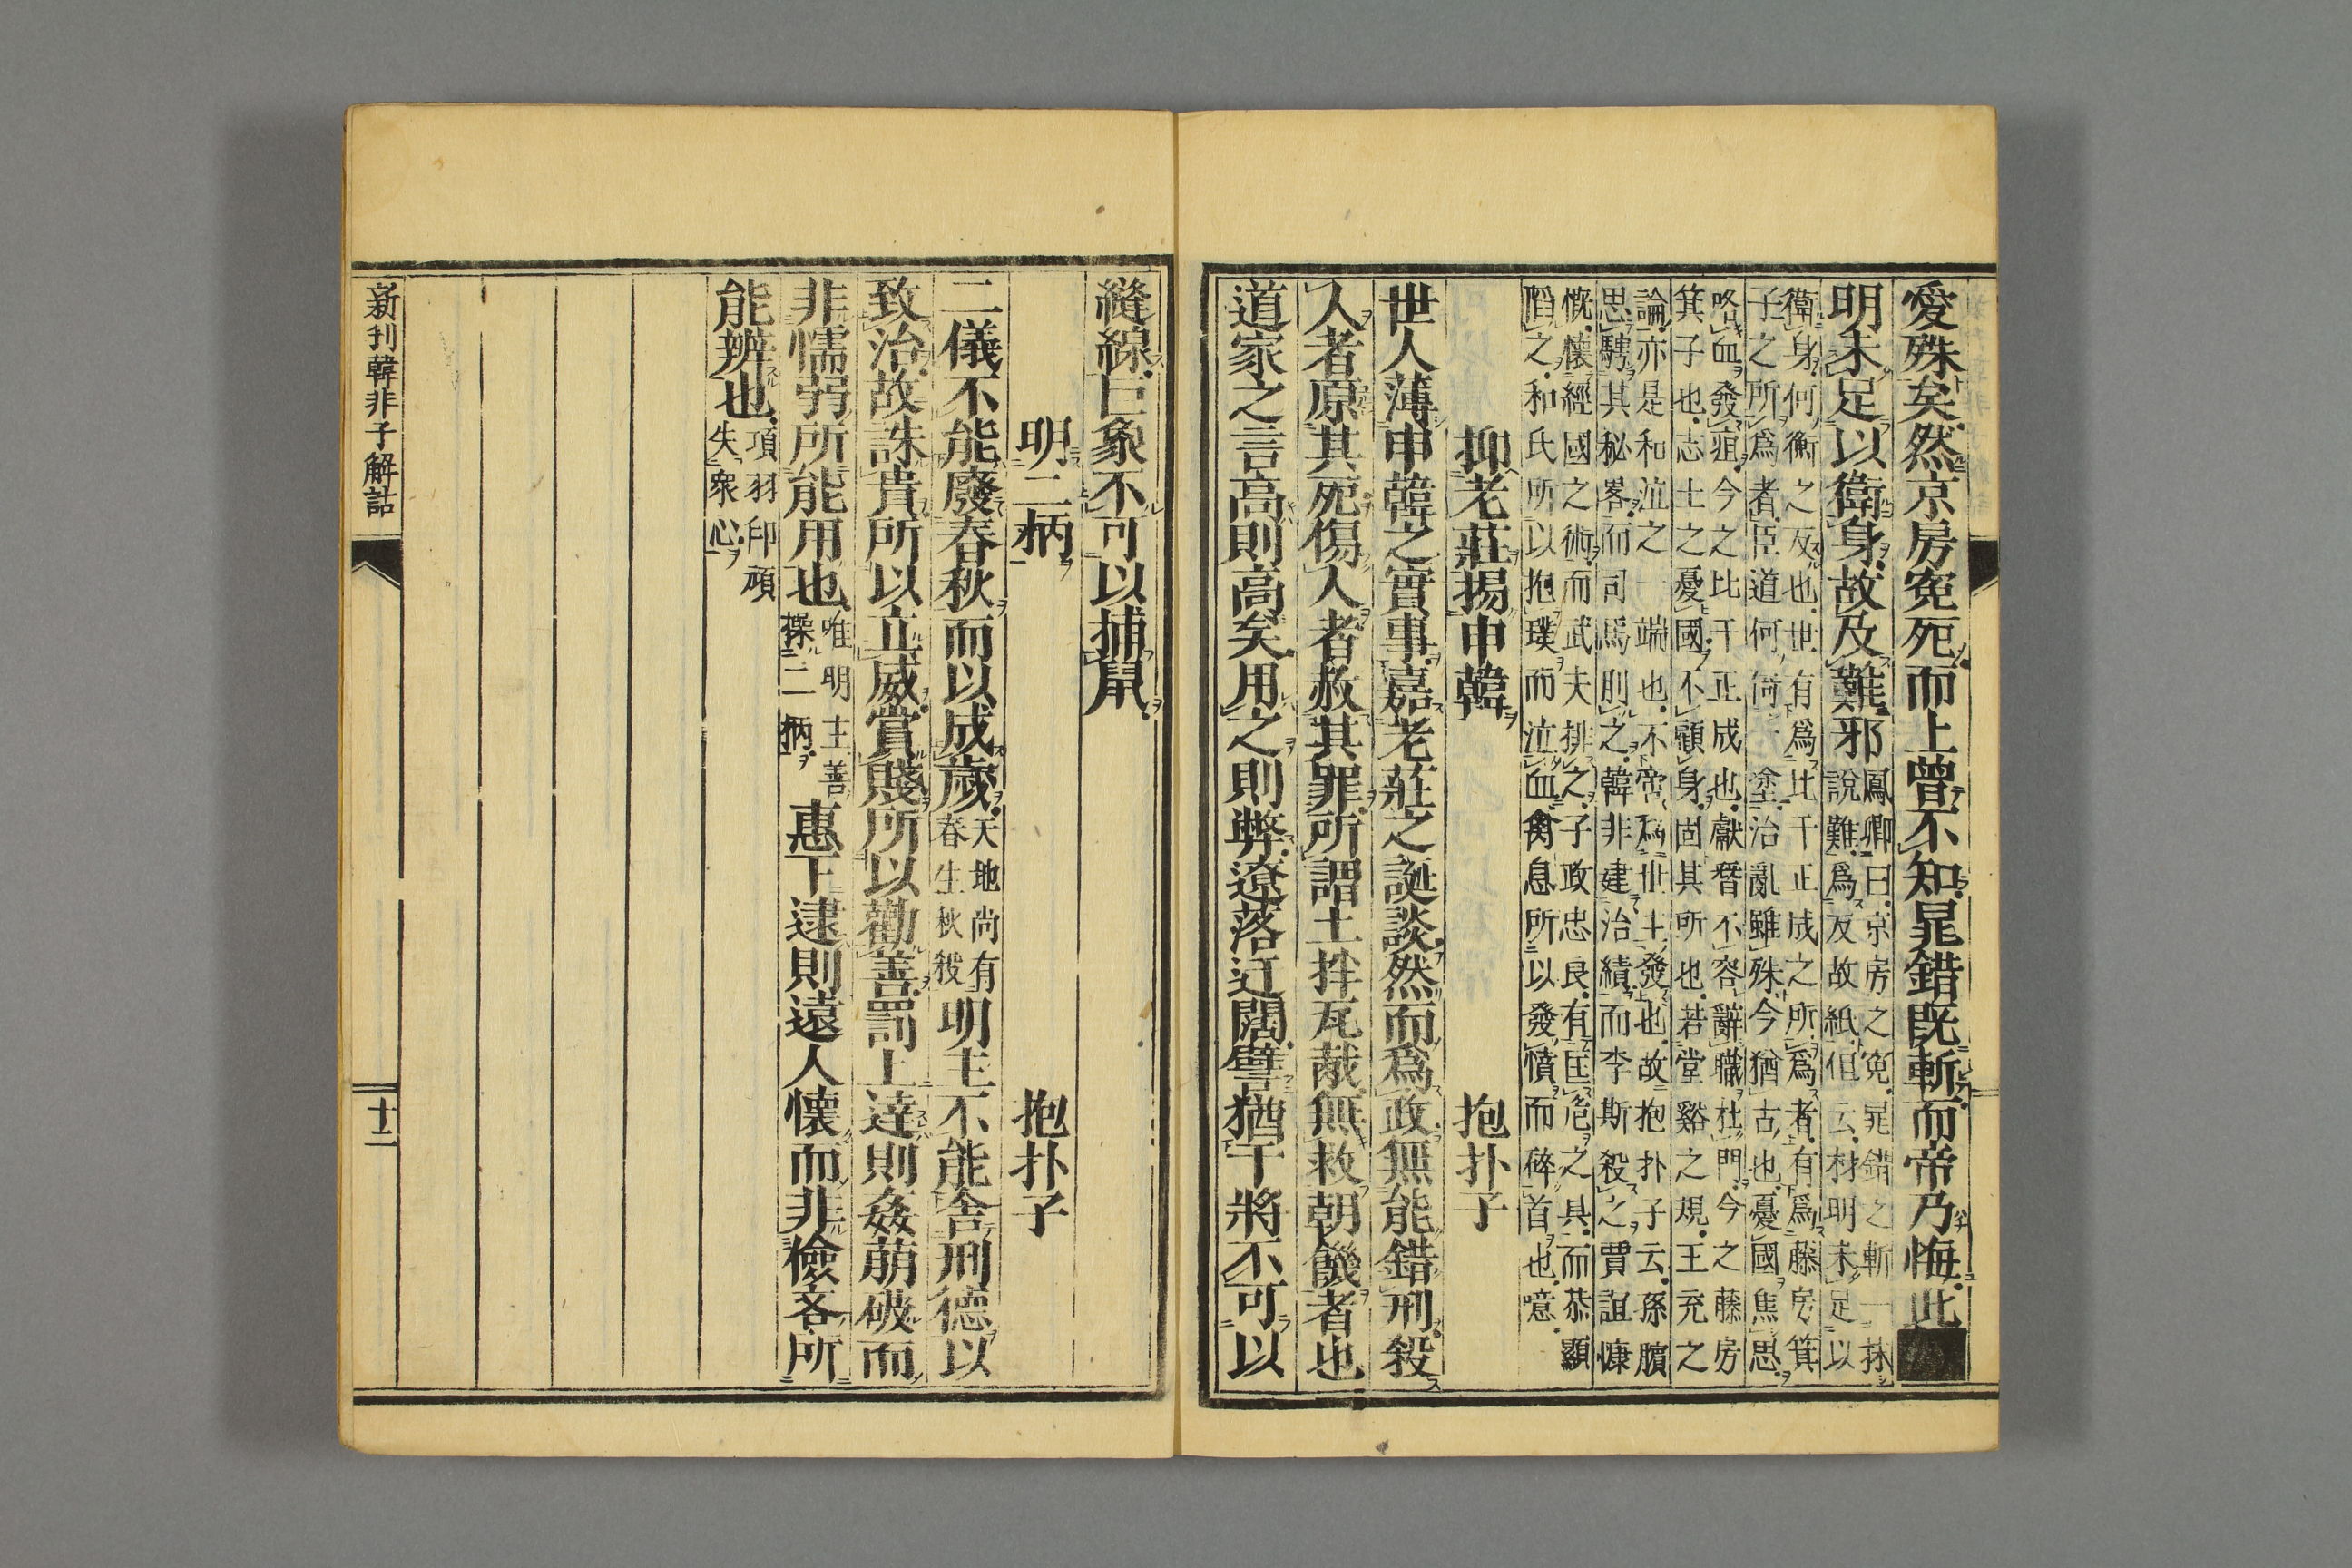 愛殊矣然京房冤死而上曾不知晁錯既斬而帝乃悔此
明未足以衛身故及難邪
鳳卿曰京房之冤晁錯之斬一抹
說難爲反故紙但云材明未足以
衛身何衡之反也世有爲比干正成之所爲者有爲藤房箕
子之所爲者臣道何倚塗治亂雖殊今猶古也憂國焦思
咯血發疽今之比干正成也獻替不容辭職杜門今之藤房
箕子也志士之憂國不顧身固其所也若堂谿之規王充之
論亦是和泣之一端也不啻爲世主發也故抱扑子云孫臏
思騁其秘畧而司馬刖之韓非建治績而李斯殺之賈誼慷
慨懷經國之術而武夫排之子政忠良有匡危之具而恭顯
慆之和氏所以抱璞而泣血禽息所以發憤而碎首也噫
抑老莊揚申韓　抱扑子
世人薄申韓之實事嘉老莊之誕談然而爲政無能錯刑殺
人者原其死傷人者赦其罪所謂土拌瓦胾無救朝饑者也
道家之言高則高矣用之則弊遼落迂闊譬猶干將不可以
縫線巨象不可以捕鼠
明二柄　抱扑子
二儀不能廢春秋而以成歲
天地尚有
春生秋殺
明主不能舍刑德以
致治故誅貴所以立威賞賤所以勸善罰上達則姦萌破而
非懦弱所能用也
唯明主善
操二柄
惠下逮則遠人懷而非儉吝所
能辨也
項羽印頑
失衆心
新刊韓非子解詁
十二